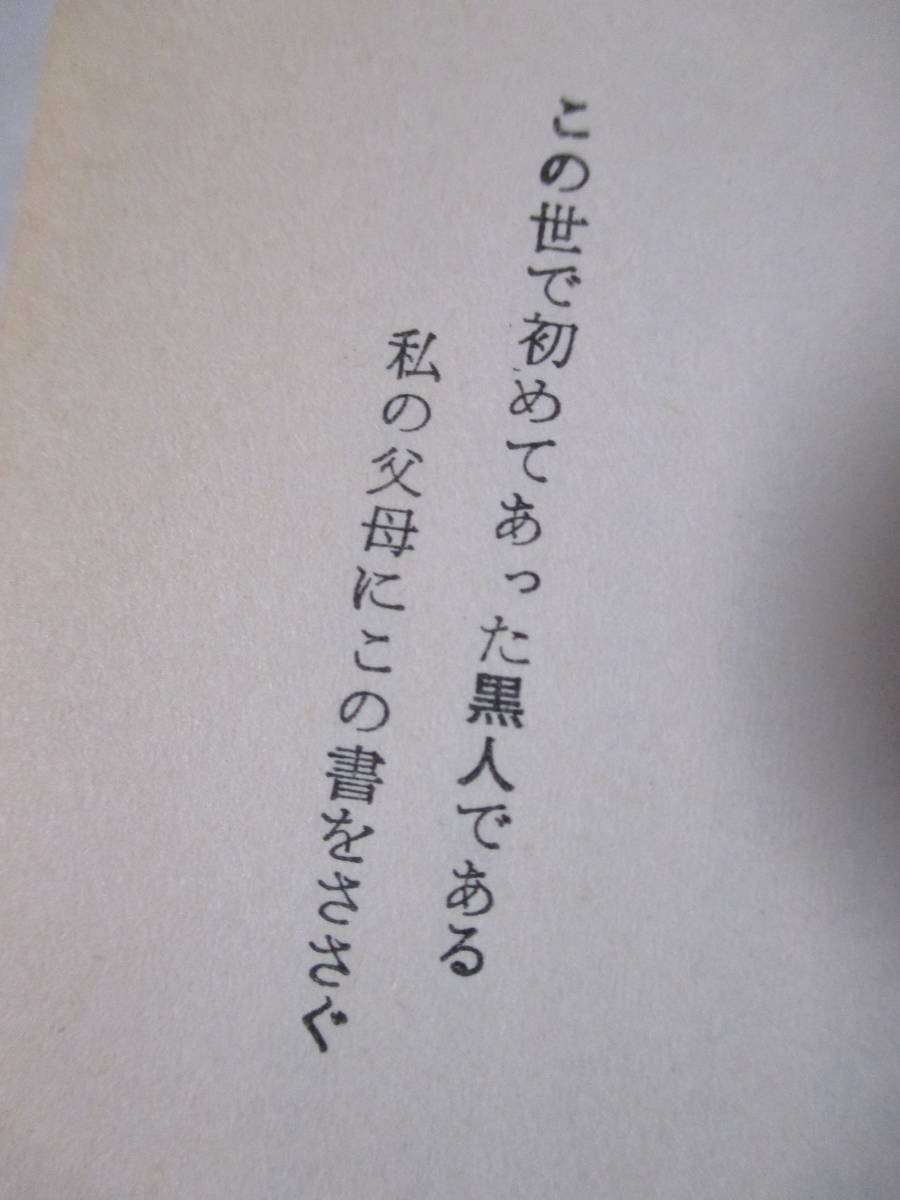 この世で初めてあった黒人である
私の父母にこの書をささぐ